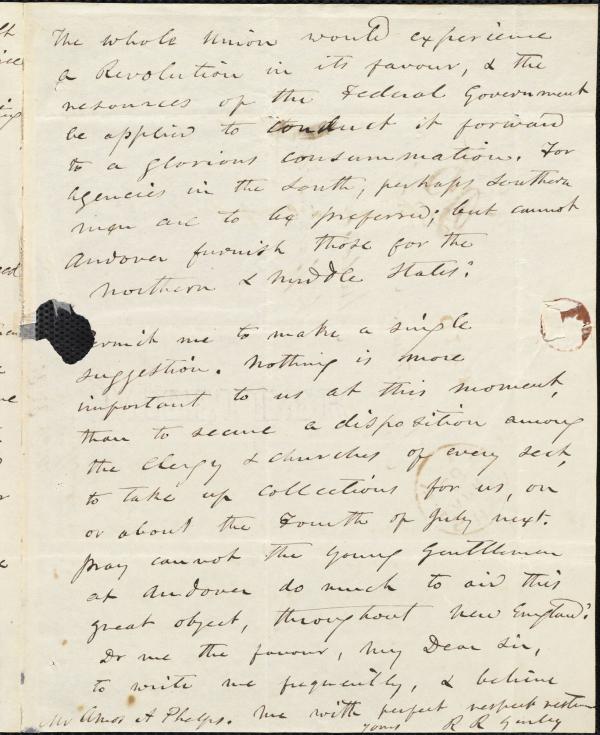 The whole Union would experience
a Revolution in its favour, & the
resources of the Federal Government
be applied to conduct it forward
to a glorious consummation. For
agencies in the South, perhaps Southern
men are to be preferred; but cannot
Andover furnish those for the
Northern & Middle States?
Permit me to make a single
suggestion. Nothing is more
important to us at this moment,
than to secure a disposition among
the Clergy & churches of every sect,
to take up Collections for us, on
or about the Fourth of July next.
Pray cannot the young Gentlemen
at Andover do much to aid this
great object, throughout New England?
Do me the favour, my Dear Sir,
to write me frequently, & believe
me with perfect respect & esteem
Mr Amos A Phelps.
yours R R Gurley